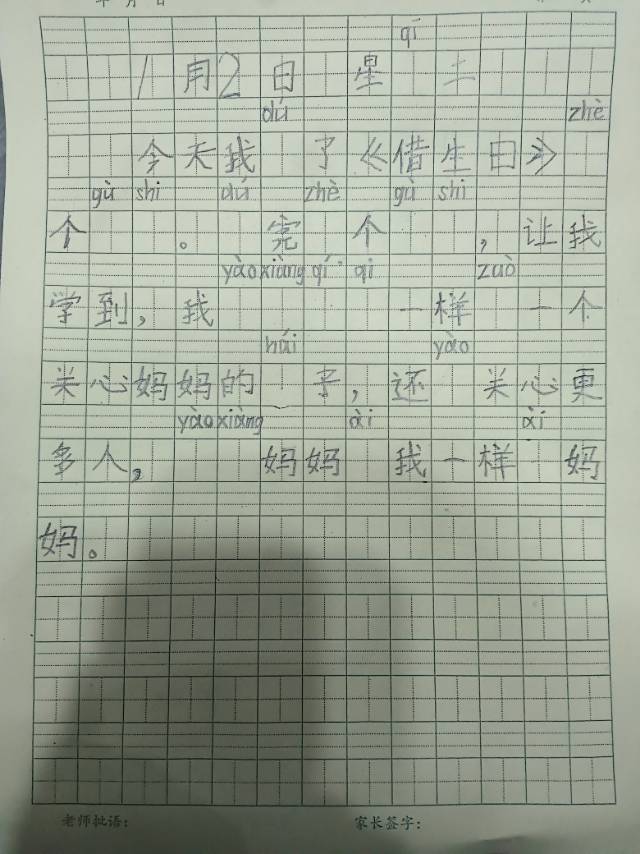 qī
1月2日 星 土
dú zhè
今天我 了《借生日》
gù shi dú zhè gù shi
个 。 完 个 ，让我
yào xiàng qí qi zuò
学到，我 一样 一个
hái yào
关心妈妈的 子，还 关心更
yào xiàng ài ài
多人， 妈妈 我一样 妈
妈。
老师批语： 家长签字：